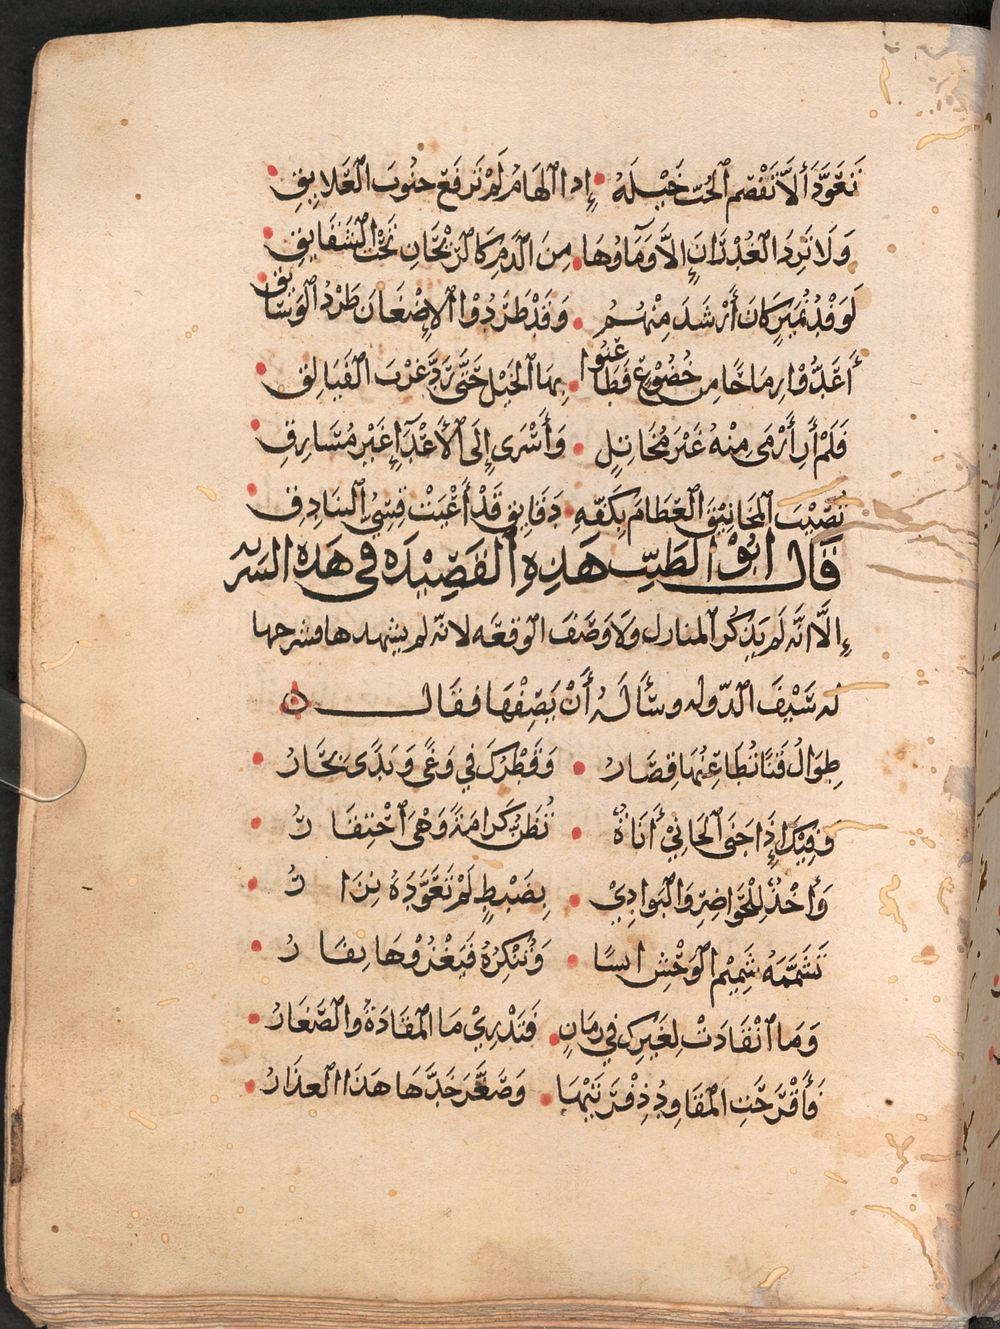 تَعَوَّدَ أَلَّا تَقْضَمَ الحَبَّ خَيْلُهُ • إِذا الهَامُ لَمْ تَرفَعْ جُنُوبَ العَلَايِقِ
وَلَا تَرِدَ الغُدْرَانَ إِلَّا وَمَاؤهَا • مِنَ الدَّمِ كَالرَّيْحَانِ تَحْتَ الشَّقَايِقِ
لَوَفْدُ نُمَيْرٍ كَانَ أَرْشَدَ مِنْهُمُ • وَقَدْ طَرَدُوْا الاضْعَانَ طَرْدَ الوَسَايِقِ
أَعَدُّوْا رِمَاحًا مِن خُضُوْعٍ فَطَاعَنُوا • بِهَا الخَيْلَ حَتَّى رَدَّ غَرْبَ الفَيَالِقِ
فَلَمْ أَرَ أَرْمَى مِنْهُ غَيْرَ مُخَاتِلٍ • وَأَسْرَى إِلَى الأَعْدَآءِ غَيْرَ مُسَارِقِ
تُصِيْبُ المَجَانِيْقُ العِظَامُ بِكَفِّهِ • دَقَايِقَ قَدْ أَعْيَتْ قِسِيَّ البَنَادِقِ
قَالَ ابُوْ الطَيّبِ هَذِهِ القَصِيْدَه فى هَذه السَريّه
إِلَّا انَّه لَم يَذكُر المنازل وَلَا وَصَفَ الوقعَه لانّه لم يشهدها فشرحها
لَه سَيْفَ الدّوله وسَأَلَهُ أَنْ يَصِفْهَا فقَالــ
طِوَالُ قَنًا تُطَاعِنُهَا قِصَارُ • وَقَطْرُكَ فِي وَغًى وَنَدًى بِحَارُ
وَفِيْكَ إِذَا جَنَى الجَانِيْ أَنَاةٌ • تُظَنُّ كَرَامَةً وَهْيَ احْتِقَارُ
وَأَخْذٌ لِلحَوَاضِرِ وَالبَوَادِيْ • بِضَبْطٍ لَمْ تَعَوَّدَهُ نِزَارُ
تَشَمَّمَهُ شَمِيْمَ الوَحْشِ انسًا • وَتُنْكِرُهُ فَيَغْزُوْهَا نِفَارُ
وَمَا انْقَادَتْ لِغَيْرِكَ فِي زَمَانٍ • فَتَدْرِيْ مَا المَقَادَةُ وَالصَّغَارُ
فَأَقْرَحَتِ المَقَاوِدُ ذِفْرَيَيْهَا • وَصَعَّرَ خَدَّهَا هَذَا العِذَارُ